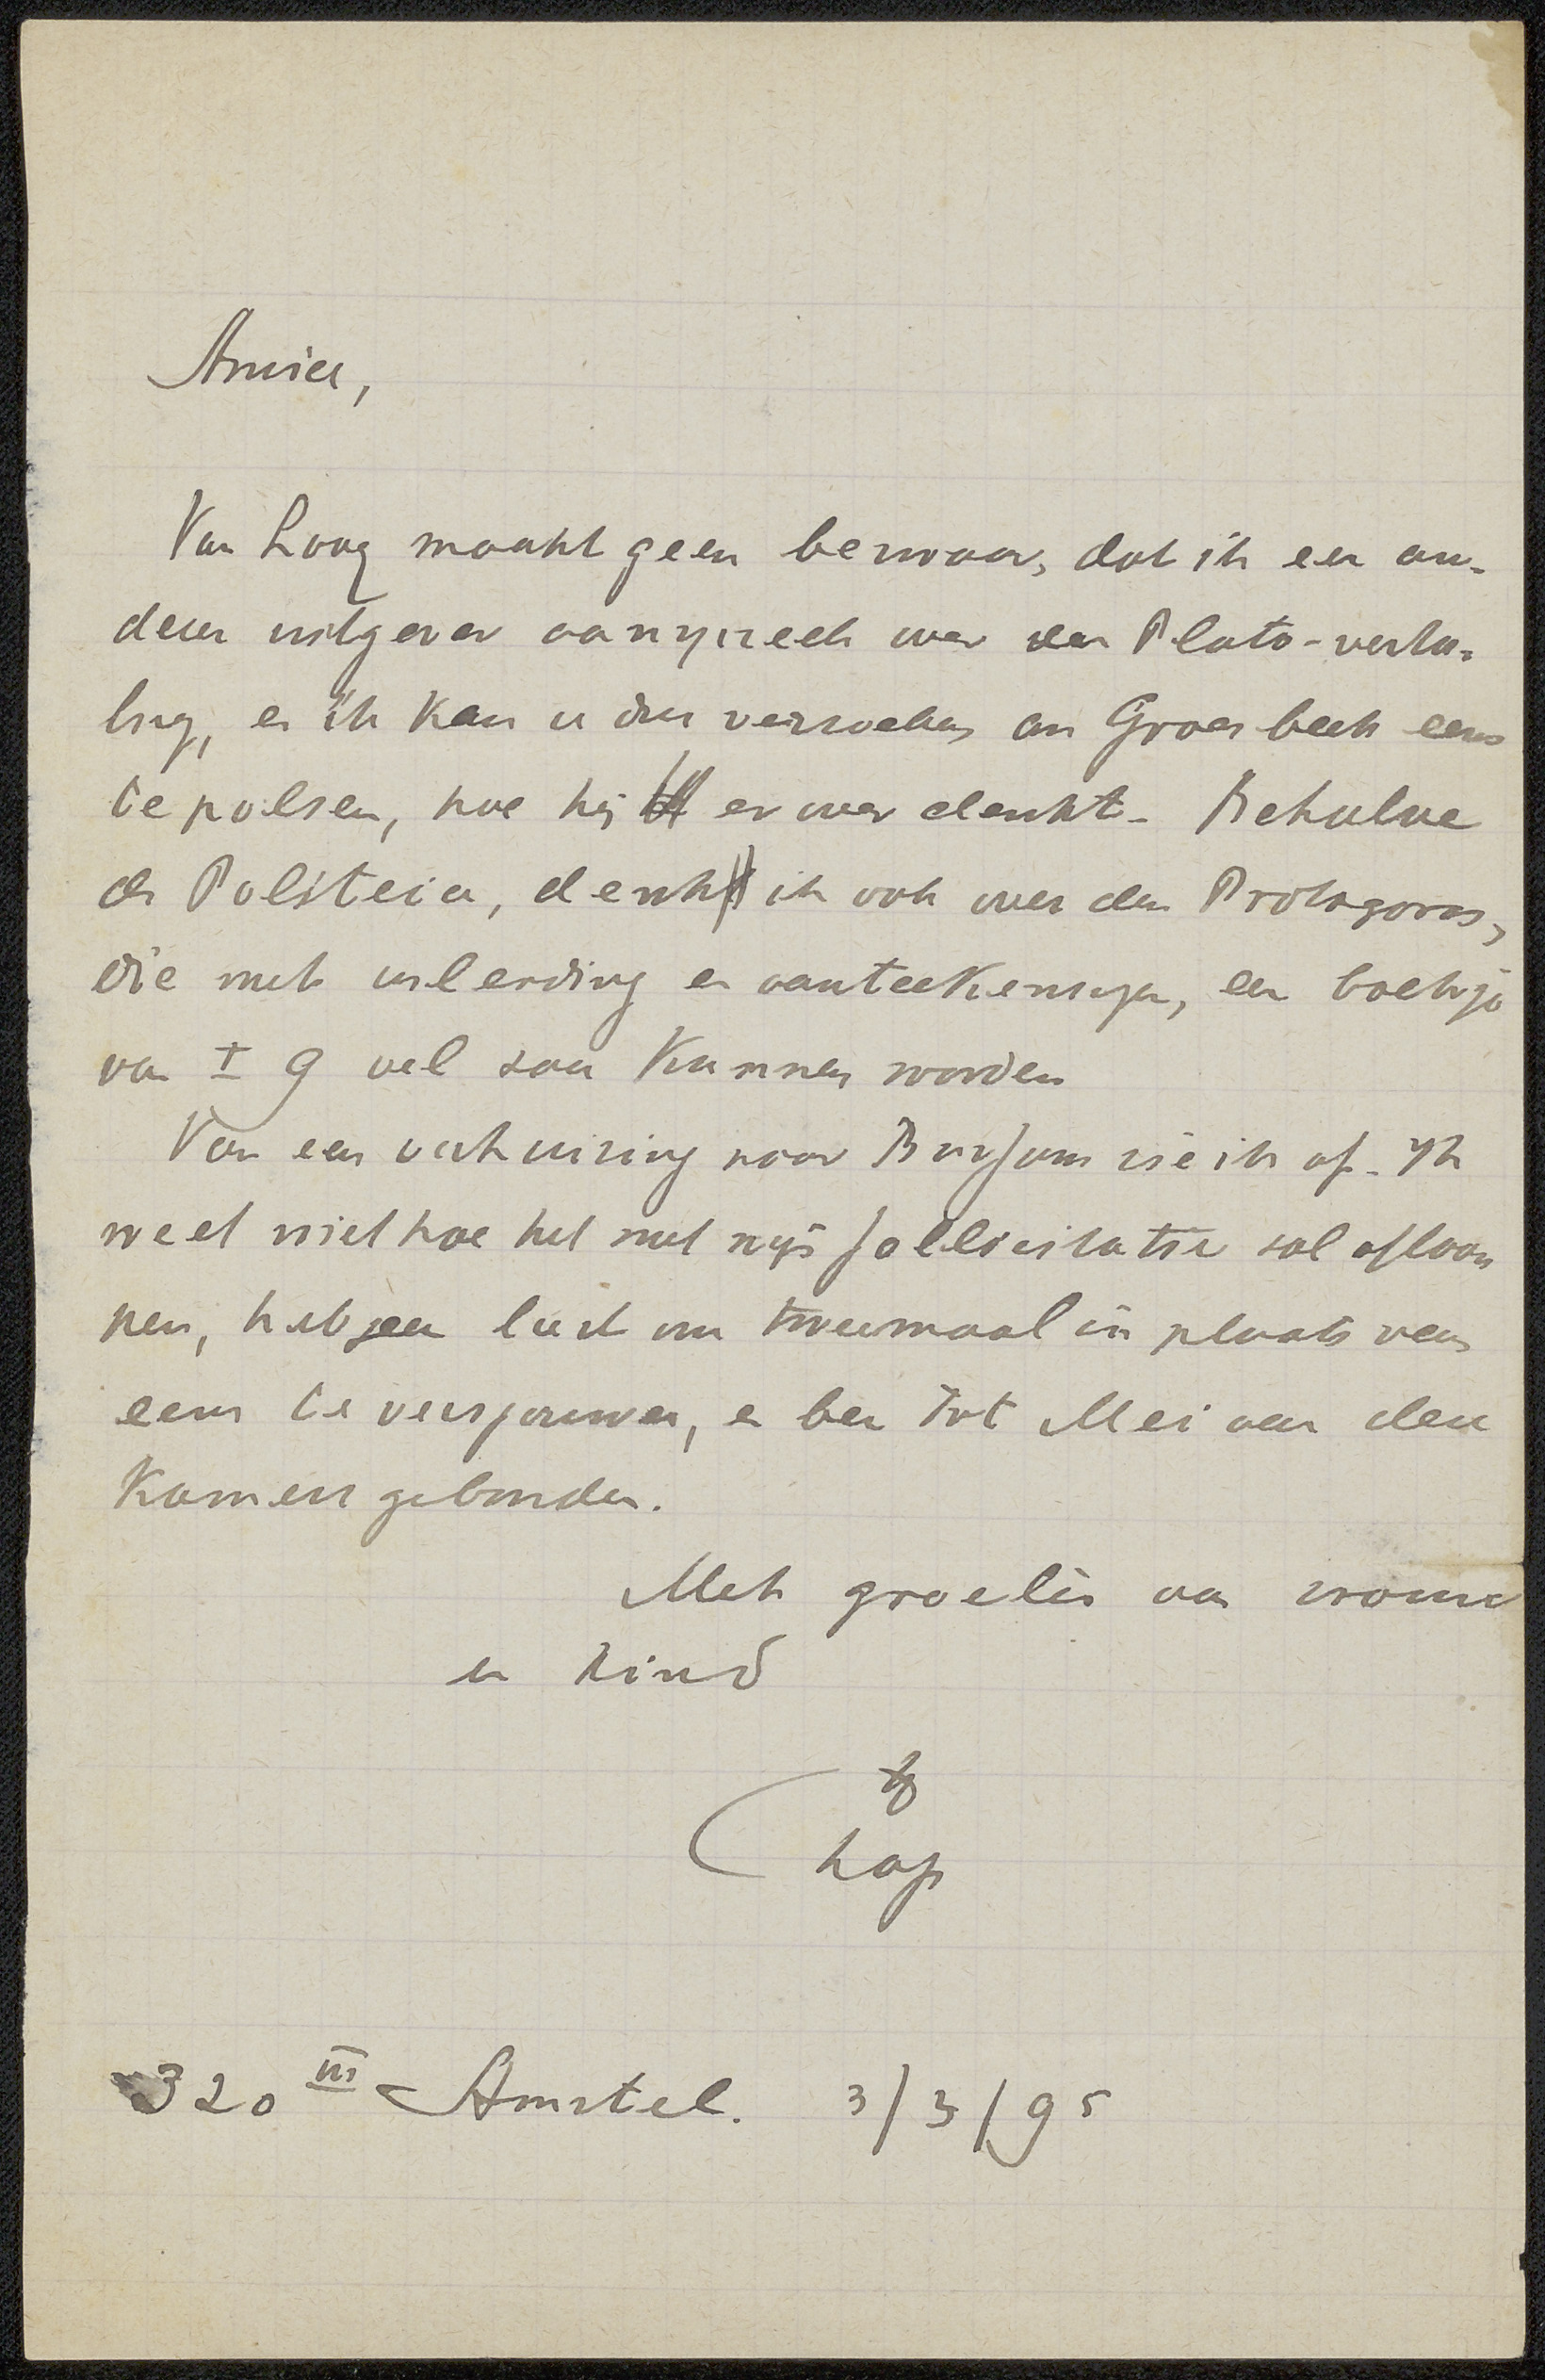 Amice,
Van Looy maakt geen bezwaar, dat ik een an-
deren uitgever aanspreek over een Plato-verta-
ling, en ik kan u dus verzoeken om Groesbeek eens
te polsen, hoe hij er over denkt. Behalve
de Politeia, denk ik ook over den Protagoras,
die met inleiding en aanteekeningen, een boekje
van ± 9 vel zou kunnen worden
Van een verhuizing naar Bussum zie ik af. Ik
weet niet hoe het met mijn sollicitatie zal afloo
pen, heb geen lust om tweemaal in plaats van
eens te versjouwen, en ben tot Mei aan den
kamers gebonden.
Met groeten aan vrouw
en kind
320 III Amstel. 3/3/95